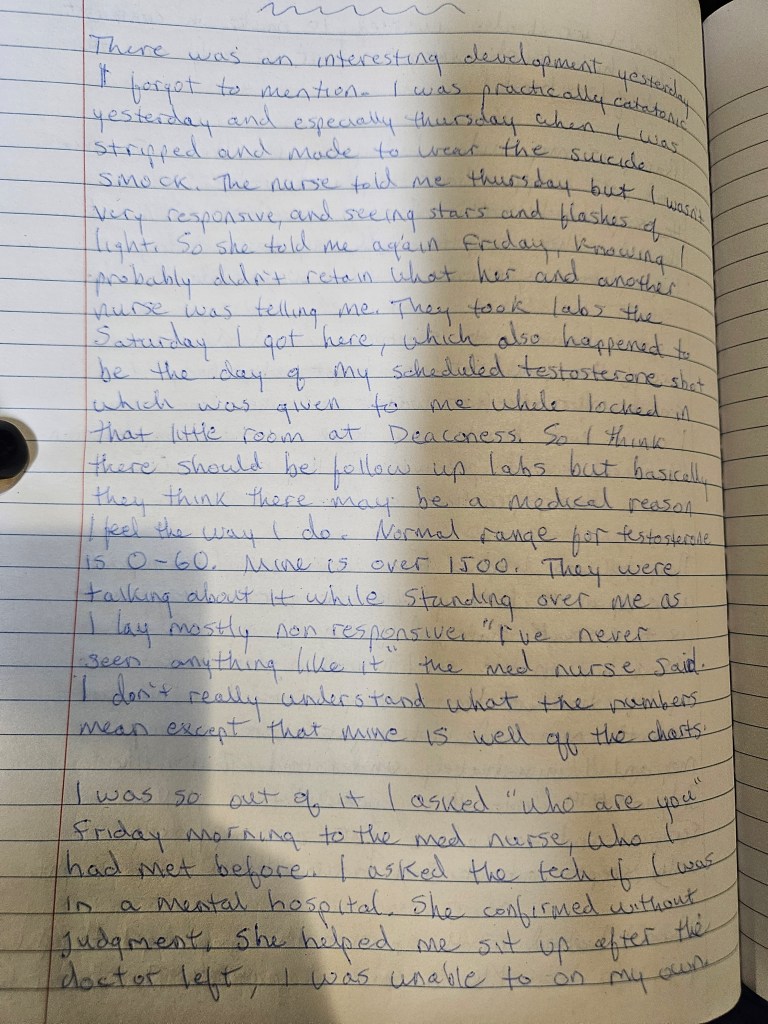 There was an interesting development yesterday
I forgot to mention. I was practically catatonic
yesterday and especially thursday when I was
stripped and made to wear the suicide
smock. The nurse told me thursday but I wasn't
very responsive, and seeing stars and flashes of
light. So she told me again Friday, knowing I
probably didn't retain what her and another
nurse was telling me. They took labs the
Saturday I got here, which also happened to
be the day of my scheduled testosterone shot
which was given to me while locked in
that little room at Deaconess. So I think
there should be follow up labs but basically
they think there may be a medical reason
I feel the way I do. Normal range for testosterone
is 0-60. Mine is over 1500. They were
talking about it while standing over me as
I lay mostly non responsive. "I've never
seen anything like it" the med nurse said.
I don't really understand what the numbers
mean except that mine is well off the charts.
I was so out of it I asked "who are you"
Friday morning to the med nurse, who I
had met before. I asked the tech if I was
in a mental hospital. She confirmed without
judgment. She helped me sit up after the
doctor left, I was unable to on my own.